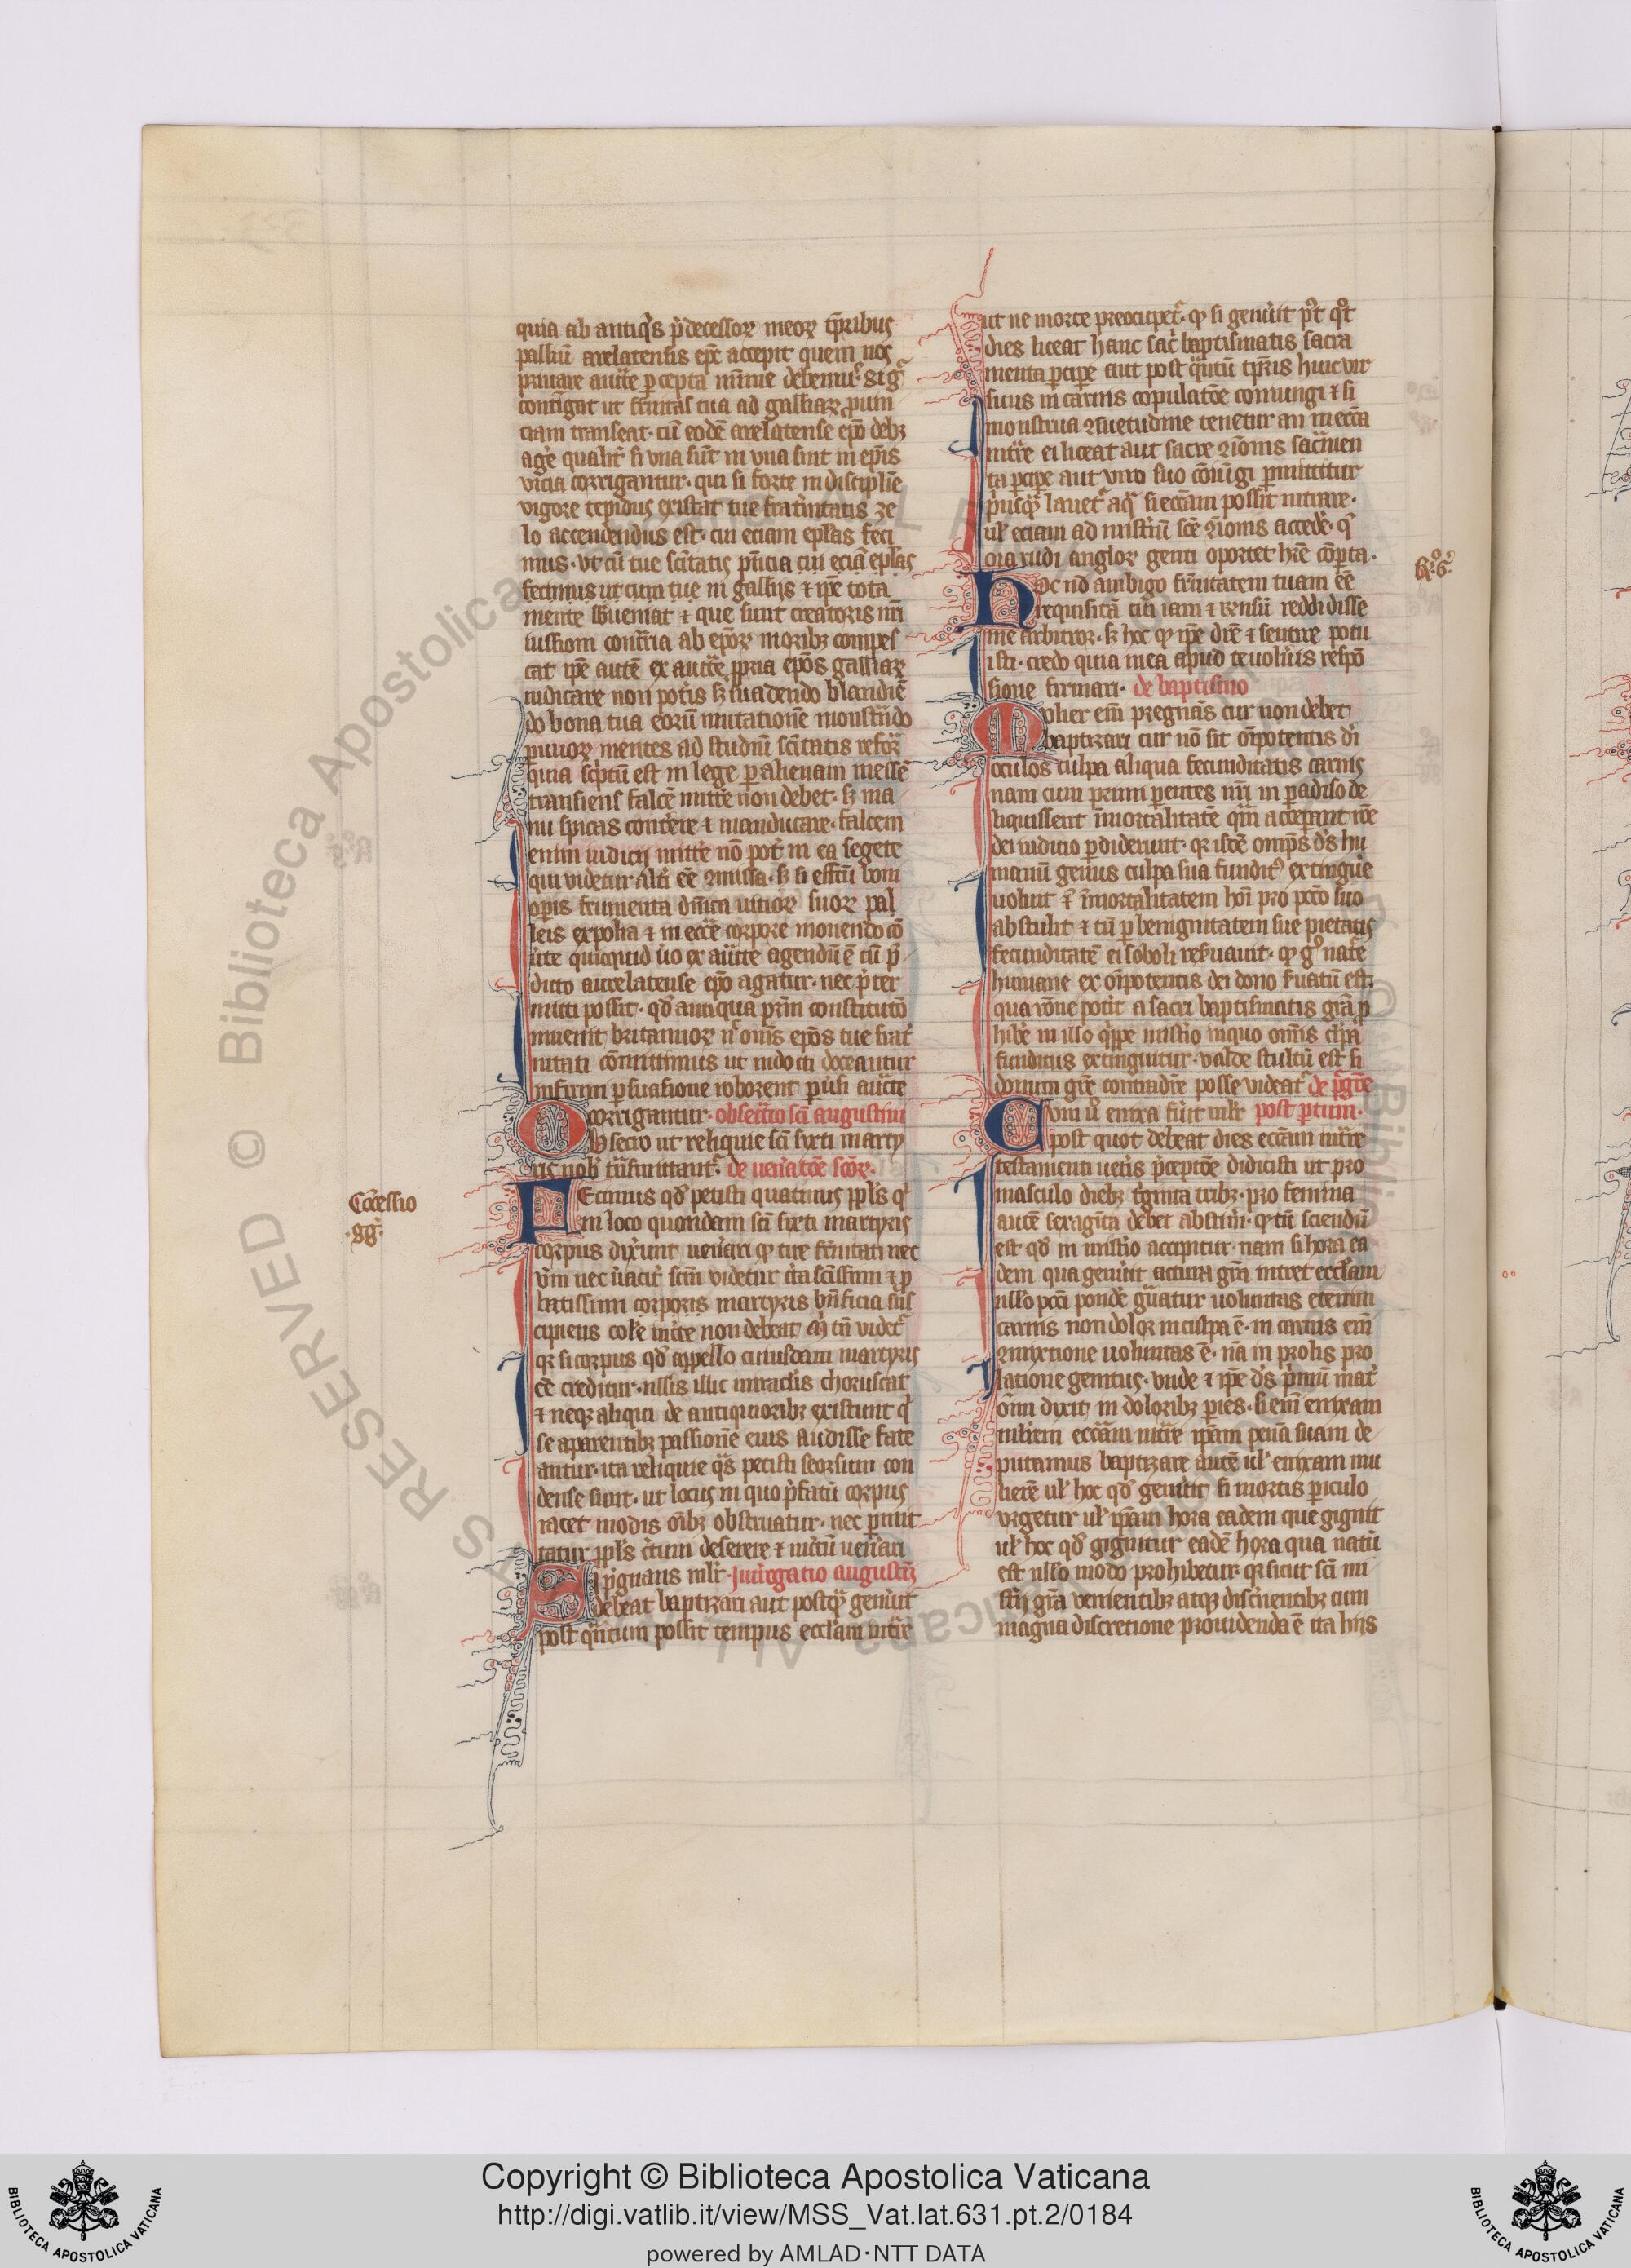 quia ab antiq̇s p̄decessoꝝ meoꝝ tp̄ribus
palliū arelatensis ep̄c accepit quem nos
priuare auct̄te ꝑcepta mīnime debemus. Sig̃
contīgat ut fr̄nitas tua ad galliaꝝ ꝓuin
ciam transeat. cū eodē arelatense ep̄o debꝫ
age᷑ qualit̃ si una sūt in una sint in ep̄is
vicia corrigantur. qui si forte in disciplīe
vigore tepidus existat tue frat̃nitatis ze
lo accendendus est. cui eciam ep̄las feci
mus. vt cū tue sc̄itatis p̄ncia cui eciā ep̄las
fecimus ut cum tue in gallijs ⁊ ip̄e tota
mente ībueniat ⁊ que sunt creatoris nr̄i
iussioni cont̃ria ab ep̄oꝝ moribꝫ compes
cat ip̄e autē ex auct̄te ꝓpria ep̄os galliaꝝ
iudicare non pot̃is sꝫ suadendo blandiē
do bona tua eorū mutationē monst̃ndo
prauoꝝ mentes ad studiū sc̄itatis refor̃
quia sc̄ptū est in lege ꝑ alienam messē
transiens falcē mitte᷑ non debet. sꝫ ma
nu spicas conte᷑re ⁊ manducare. falcem
enim iudicij mitte᷑ nō pot̃ in ea segete
qui videtur alt̃i ēē ꝯmissa. sꝫ si effc̄ū boni
op̄is frumenta dn̄ica uitioꝝ suoꝝ pal
leis expolia ⁊ in ecc̄e corpore monendo cō
ūte quicquid ũo ex auct̄te agendū ē cū p̄
dicto aurelatense ep̄o agatur. nec p̄ter
mitti possit. qd̄ antiqua pr̄m constitutō
inuenit britannioꝝ ũ om̄s ep̄os tue frat̃
nitati cōmittimus ut indocti doceantur
infirmi ꝑsuasione roborent̃ ꝑũsi auct̄te
corrigantur. obsecr̄tio sc̄i augustini
Obsecro ut reliquie sc̄i sixti marty
ris nob̄ tr̄nsmittant᷑. de uen̄atōe sc̄oꝝ.
Fecimus qd̄ petisti quatinus ppl̄s q̇
in loco quondam sc̄i sixti martyris
corpus dix̄unt uen̄ari qꝫ tue fr̄nitati nec
v̄m nec ũacit̃ sc̄m videtur c̄ta sc̄issimi ⁊ ꝓ
batissimi corporis martyris bn̄ficia sus
cipiens cole᷑ inc̄te non debeat. M̃ tn̄ videt᷑
qꝛ si corpus qd̄ appello cuiusdam martyris
ēē creditur. ullis illic miraclis choruscat᷑
⁊ neqꝫ aliqui de antiquioribꝫ existunt q̇
se a parentibꝫ passionē eius audisse fate
antur. ita reliquie q̄s petisti seorsum con
dense sunt. ut locus in quo p̄fatū corpus
iacet modis om̄ibꝫ obstruatur. nec ꝑmit
tatur ppl̄s c̄tum deserere ⁊ inc̄tū uen̄ari
Si p̄gnans mlr̄. Int̃rogatio augustini
debeat baptizari aut postq̄ genũit
post q̄ntum possit tempus eccl̄am int̃re
Concessio
.gg̃.
aut ne morte preocupet᷑. qꝫ si genũit p̄t qt̄
dies liceat hanc sac̃ baptismatis sacra
menta ꝑcipe᷑ aut post q̄ntū tp̄ris huic vir
suus in carnis copulatōe coniungi ⁊ si
monstrua ꝯsuetudine tenetur an in ecc̄a
int̃re ei liceat aut sacre ꝯīonis sac̄men
ta ꝑcipe᷑ aut viro suo cōiūgi ꝑmittitur
p̄usq̄ lauet᷑ aq̄ si ecc̄am possit intrare.
ul̄ eciam ad mist̃iū sc̄e ꝯīonis accede᷑. q̄
oīa rudi angloꝝ genti oportet hr̄e cōꝑta.
Hoc nō ambigo fr̄nitatem tuam ēē
requisitā cui iam ⁊ rensū reddidisse
me arbitror. sꝫ hoc qꝫ ip̄e dic̄e ⁊ sentire potu
isti. credo quia mea apud te uoluīs respō
sione firmari. de baptismo
Mulier em̄ pregnās cur non debet
baptizari cur nō sit oīpotentis dī
oculos culpa aliqua fecunditatis carnis
nam cum primi parentes nr̄i in paradiso de
liquissent īmortalitatē q̄m accepant rc̄e
dei iudicio ꝑdiderunt. qꝛ itōē omīps ds̄ hu
manū genus culpa sua fundit᷒ extingue᷑
uoluit ⁊ īmortalitatem hoī pro pcc̄o suo
abstulit ⁊ tn̄ ꝑ benignitatem sue pietatis
fecunditatē ei soboli res̃uauit. qꝫ g᷒ nat̃e
humane ex oīpotentis dei dono s̃uatū est.
qua rōne pot̃it a sacri baptismatis gr̄a ꝓ
hibe᷑ in illo q̇ppe mist̃io in quo om̄is clp̄a
funditus extinguitur. valde stultū est si
donum gr̄e contradic̄e posse videat᷑ de p̄gn̄te
Cum ũ enixa fũit mlr̄ post ꝑtum.
post quot debeat dies ecc̄am int̃re
testamenti uet̃is p̄ceptōe didicisti ut pro
masculo diebꝫ t̃ginta tribꝫ. pro femina
autē sexagīta debet abstin̄i. qꝫ tn̄ sciendū
est qd̄ in mist̃io accipitur. nam si hora ea
dem qua genũit actura gr̄as intret eccl̄iam
nullo pcc̄i ponde᷑ g̃uatur uoluntas etenim
carnis non dolor in culpa ē. in carnis em̄
ꝯmixtione uoluntas ē. nā in prolis pro
latione gemitus. vnde ⁊ ip̄e ds̄ p̄mū mat̃
om̄i dixit. in doloribꝫ paries. si em̄ enixam
mulierem ecc̄am int̃re ip̄am penā suam de
putamus baptizare autē ul̄ enixam mu
lierē ul̄ hoc qd̄ genũit si mortis ꝑiculo
vrgetur ul̄ ip̄am hora eadem que gignit
ul̄ hoc qd̄ gignitur eadē hora qua natū
est nullo modo prohibetur. qꝛ sicut sc̄i mi
st̃ij gr̄a venientibꝫ atqꝫ discrientibꝫ cum
magna discretione prouidenda ē ita hijs